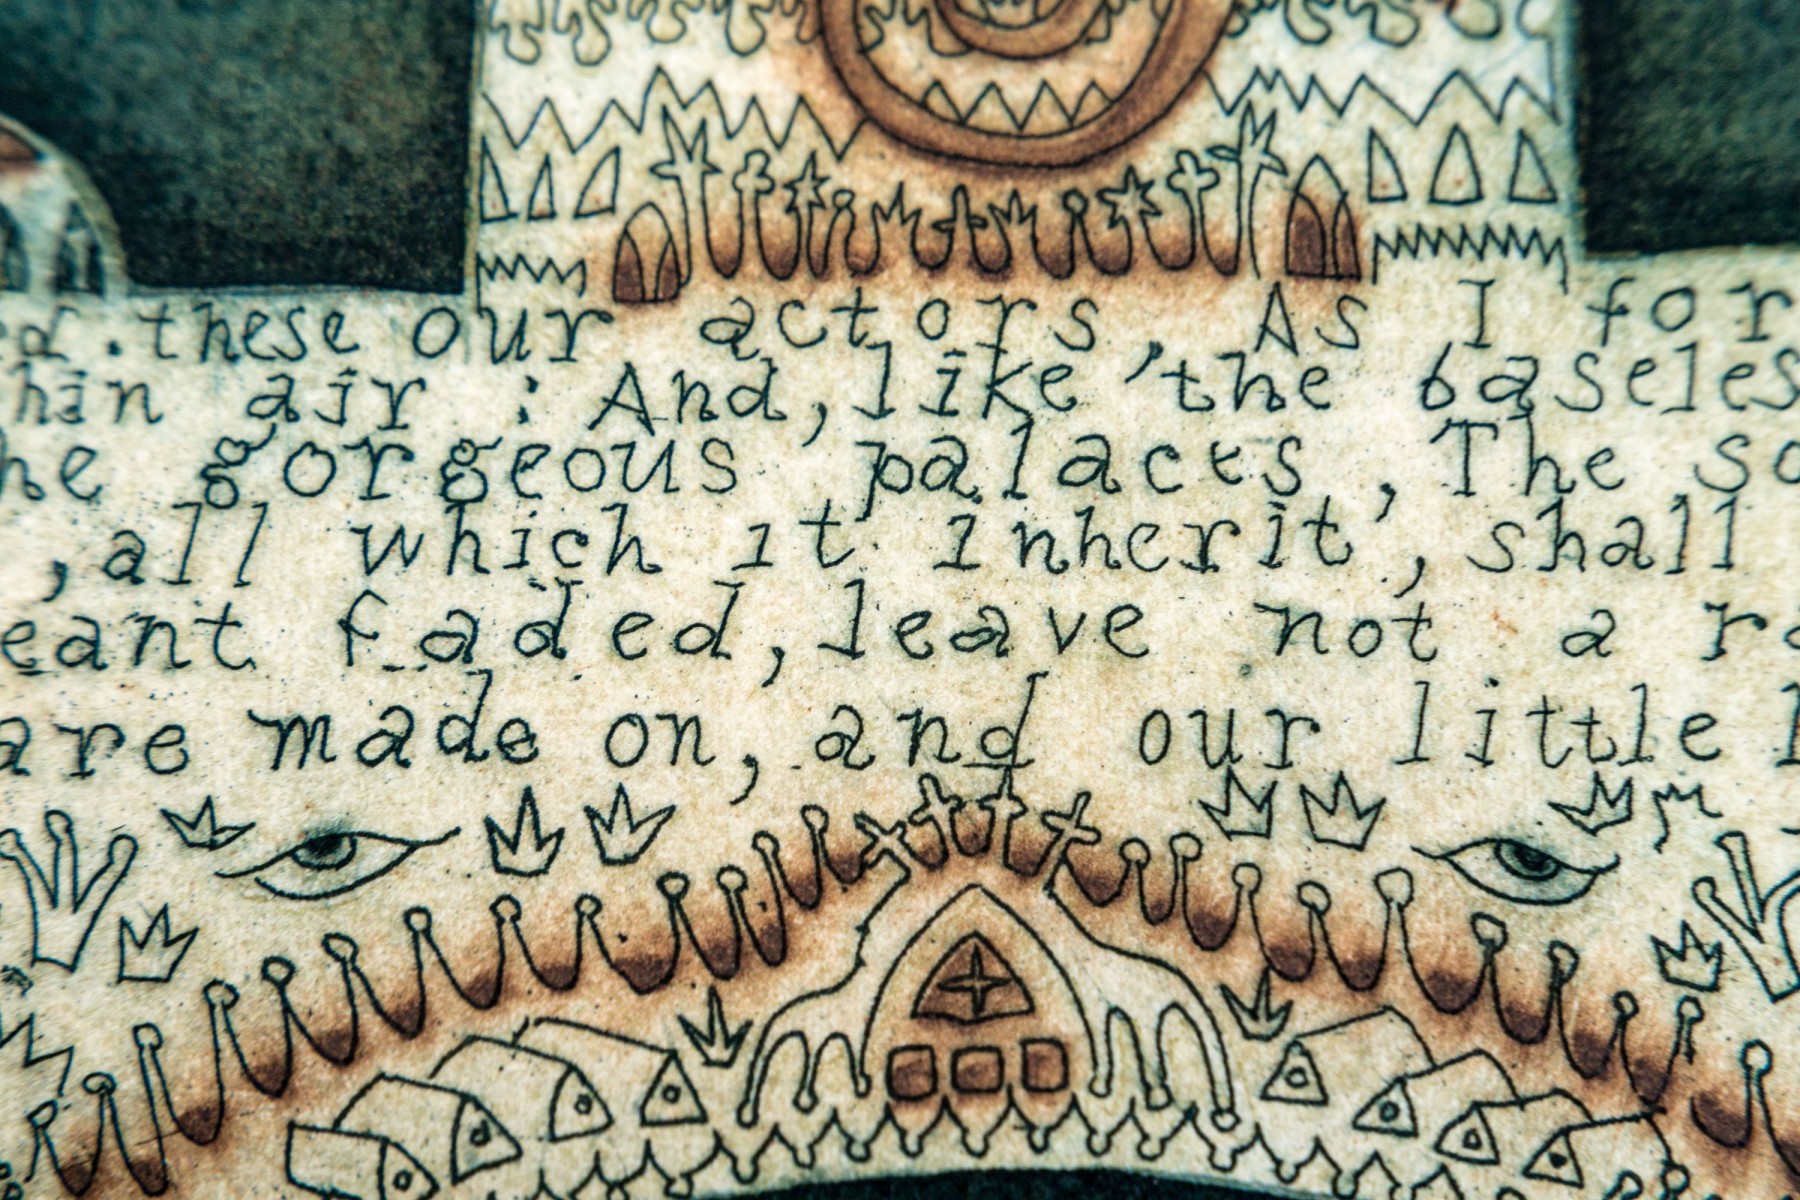 ed. these our actors, As I for
hin air : And, like 'the baseles
he gorgeous palaces, The so
, all which it inherit', shall
eant faded, leave not a ra
are made on, and our little l